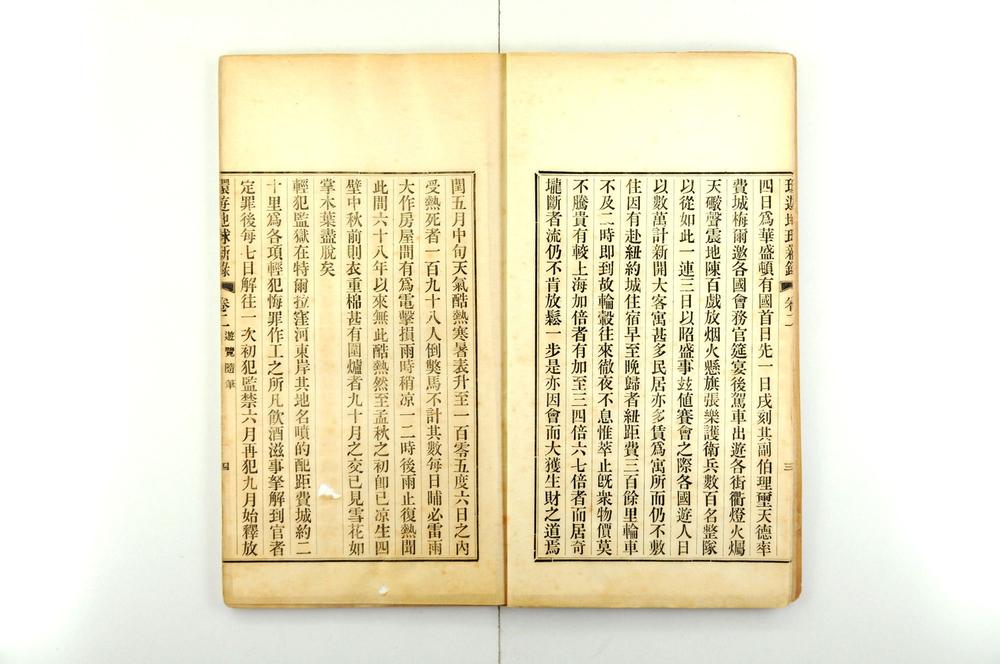 環遊地球新錄
卷二
三
四日為華盛頓有國首日先一日戌刻其副伯理璽天德率
費城梅爾邀各國會務官筵宴後駕車出遊各街衢燈火爛
天礮聲震地陳百戲放烟火懸旗張樂護衛兵數百名整隊
以從如此一連三日以昭盛事玆值賽會之際各國遊人日
以數萬計新開大客寓甚多民居亦多賃為寓所而仍不敷
住因有赴紐約城住宿早至晚歸者紐距費三百餘里輪車
不及二時即到故輪轂往來徹夜不息惟萃止旣衆物價莫
不騰貴有較上海加倍者有加至三四倍六七倍者而居奇
壠斷者流仍不肯放鬆一步是亦因會而大獲生財之道焉
閏五月中旬天氣酷熱寒暑表升至一百零五度六日之內
受熱死者一百九十八人倒斃馬不計其數每日晡必雷雨
大作房屋間有為電擊損雨時稍凉一二時後雨止復熱聞
此間六十八年以來無此酷熱然至孟秋之初卽已凉生四
壁中秋前則衣重棉甚有圍爐者九十月之交已見雪花如
掌木葉盡脫矣
輕犯監獄在特爾拉窪河東岸其地名噴的配距費城約二
十里為各項輕犯悔罪作工之所凡飲酒滋事拏解到官者
定罪後每七日解往一次初犯監禁六月再犯九月始釋放
環遊地球新錄
卷二
遊覽隨筆
四